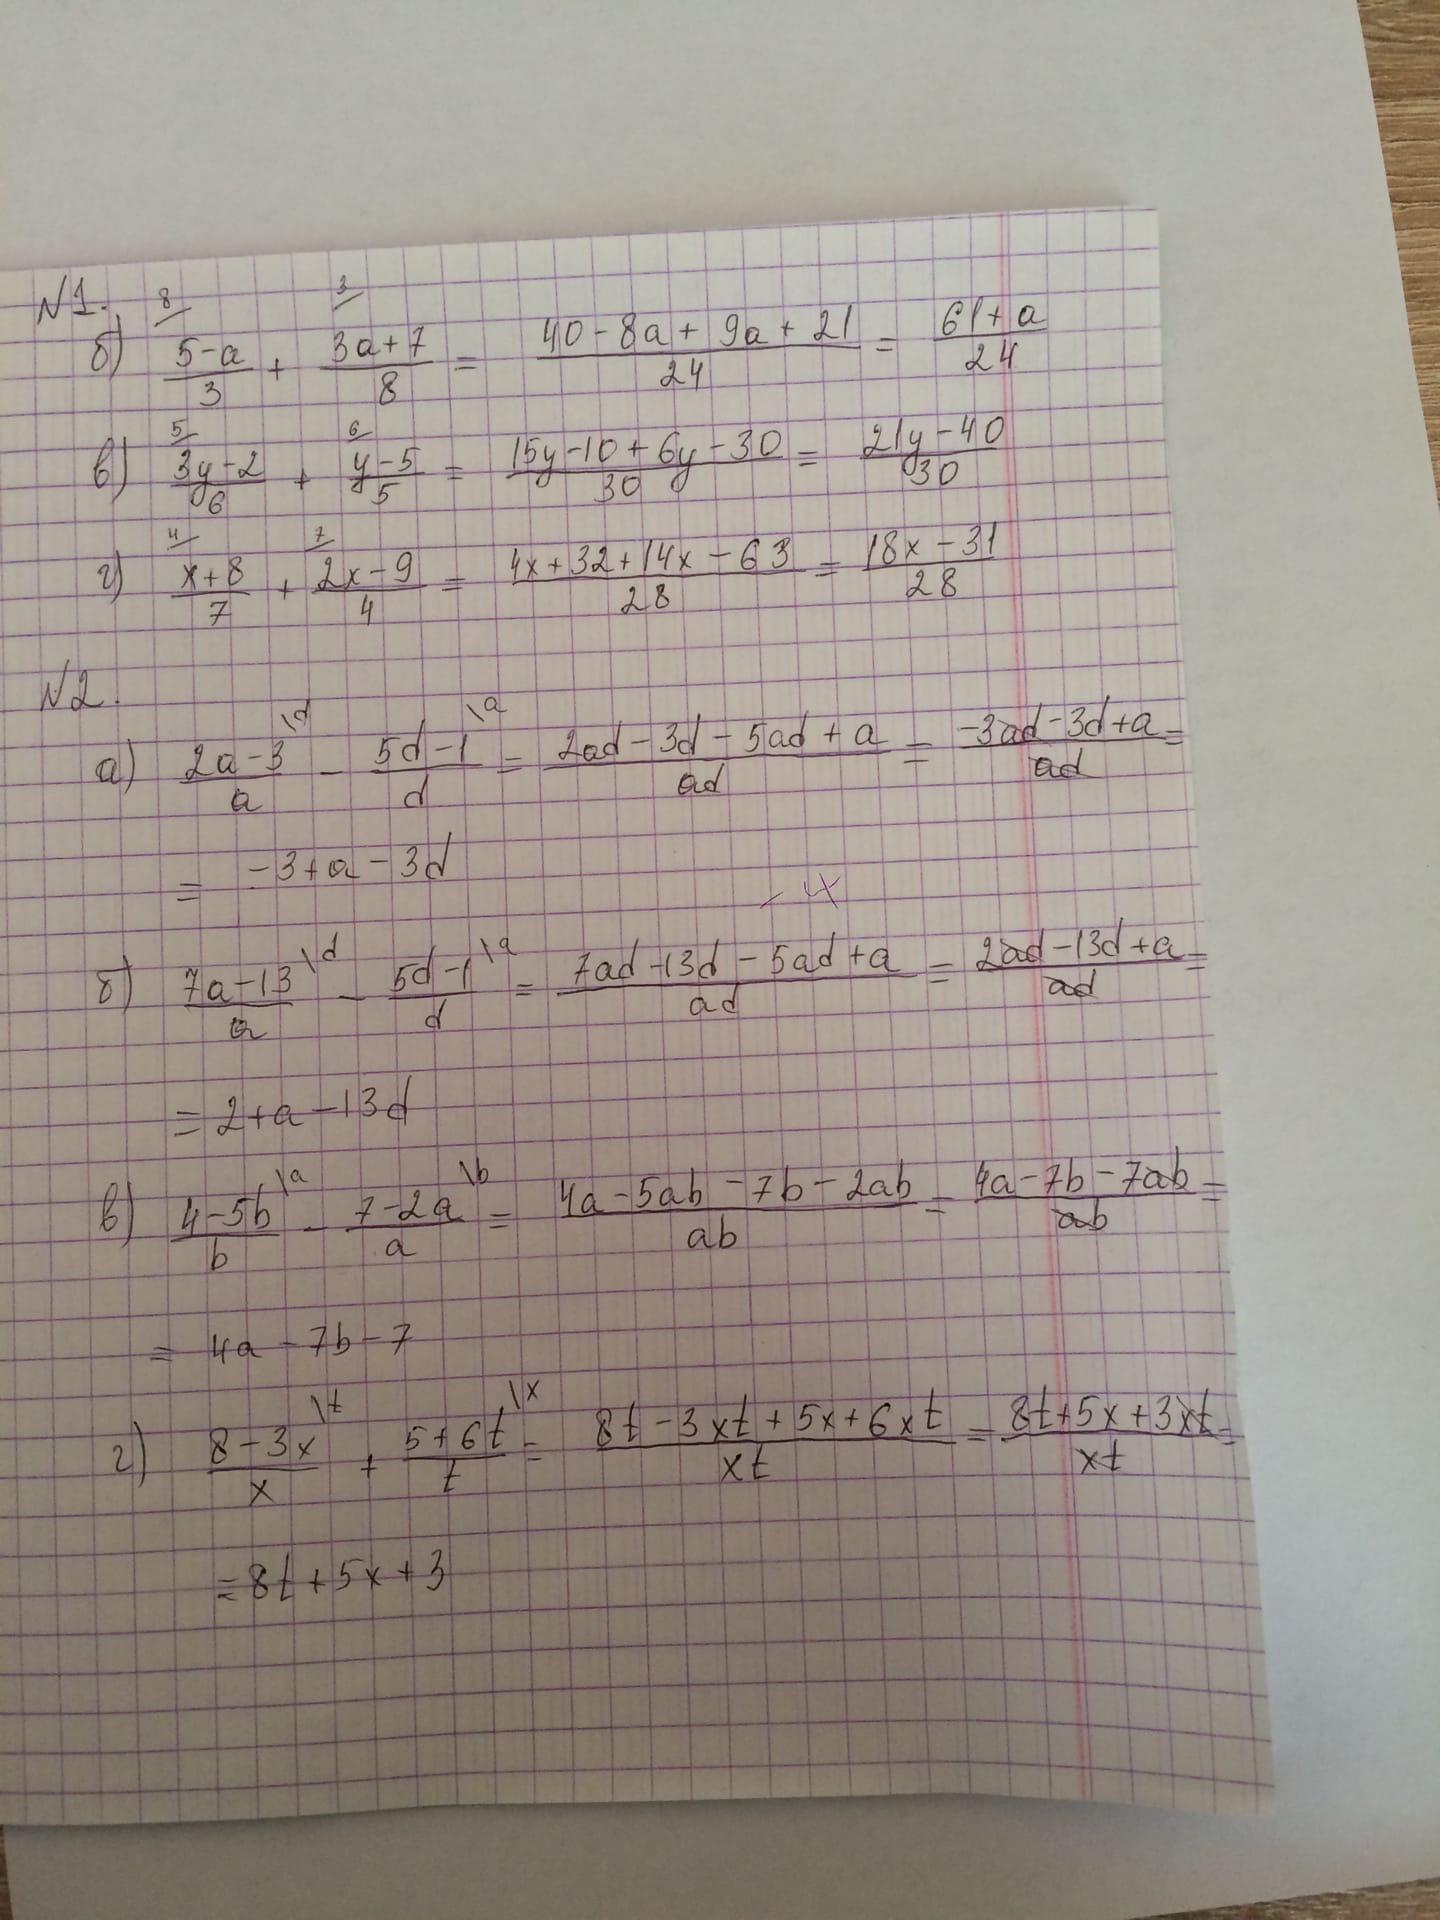 №1.
8 3
б) 5-a/3 + 3a+7/8 = 40-8a+9a+21/24 = 61+a/24
5 6
в) 3y-2/6 + y-5/5 = 15y-10+6y-30/30 = 21y-40/30
4 7
г) x+8/7 + 2x-9/4 = 4x+32+14x-63/28 = 18x-31/28
№2.
а) 2a-3\d/a - 5d-1\a/d = 2ad-3d-5ad+a/ad = -3ad-3d+a/ad =
= -3+a-3d
- 4
б) 7a-13\d/a - 5d-1\a/d = 7ad-13d-5ad+a/ad = 2ad-13d+a/ad =
= 2+a-13d
в) 4-5b\a/b - 7-2a\b/a = 4a-5ab-7b-2ab/ab = 4a-7b-7ab/ab =
= 4a-7b-7
г) 8-3x\t/x + 5+6t\x/t = 8t-3xt+5x+6xt/xt = 8t+5x+3xt/xt =
= 8t+5x+3